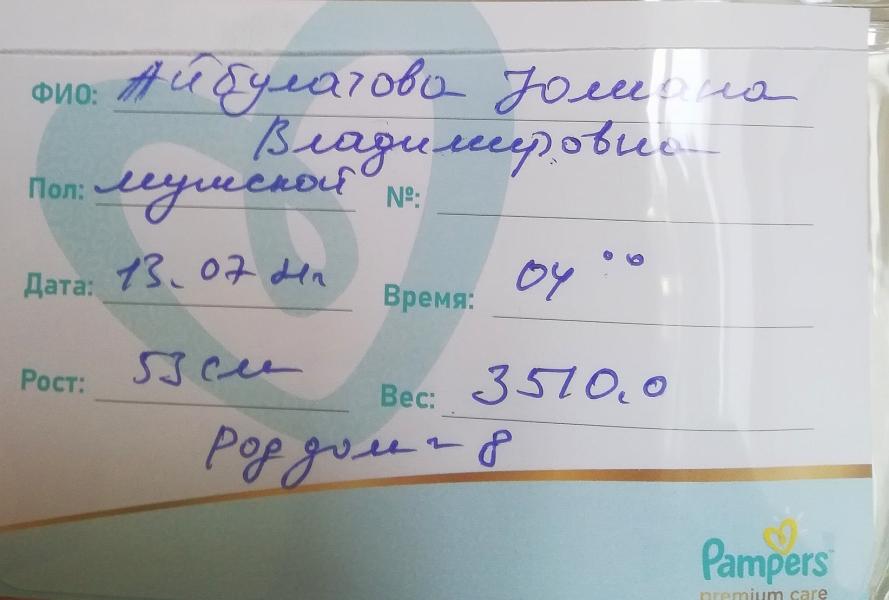 ФИО: Айбулатова Юлиана
Владимировна
Пол: мужской №:
Дата: 13.07 21г Время: 04 00
Рост: 53 см Вес: 3510,0
Род дом - 8
Pampers
premium care